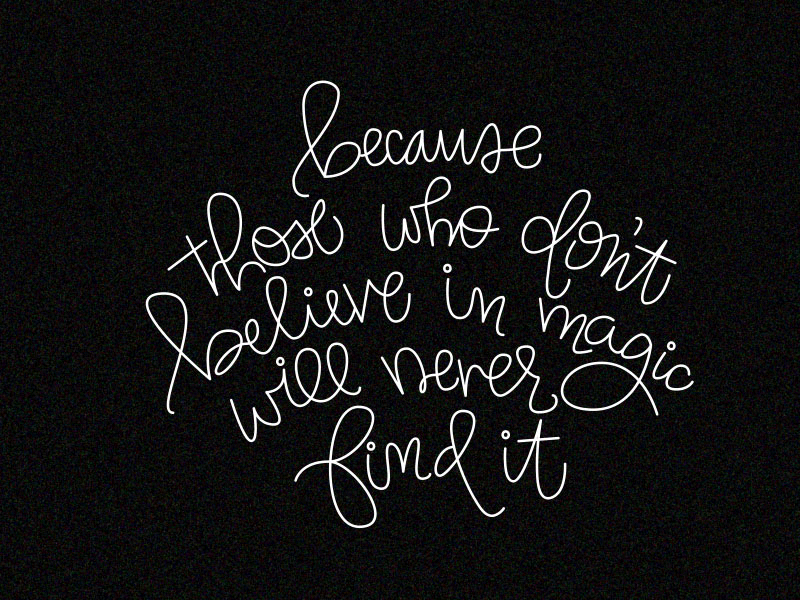 because
those who don't
believe in magic
will never
find it